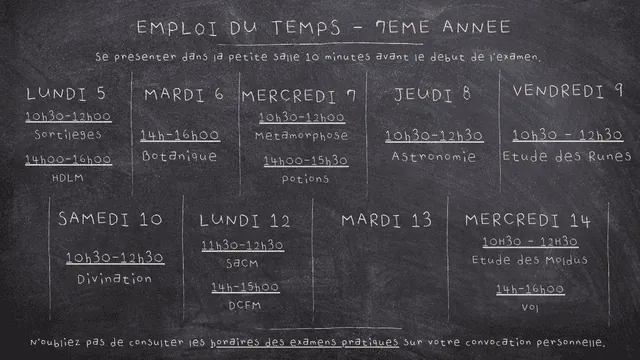 EMPLOI DU TEMPS - 7EME ANNEE
Se presenter dans la petite salle 10 minutes avant le debut de l'examen.
LUNDI 5
10h30-12h00
Sortileges
14h00-16h00
HDLM
MARDI 6
14h-16h00
Botanique
MERCREDI 7
10h30-12h00
Metamorphose
14h00-15h30
Potions
JEUDI 8
10h30-12h30
Astronomie
VENDREDI 9
10h30 - 12h30
Etude des Runes
SAMEDI 10
10h30-12h30
Divination
LUNDI 12
11h30-12h30
SaCM
14h-15h00
DCFM
MARDI 13
MERCREDI 14
10H30 - 12H30
Etude des Moldus
14h-16h00
Vol
N'oubliez pas de consulter les horaires des examens pratiques sur votre convocation personnelle.